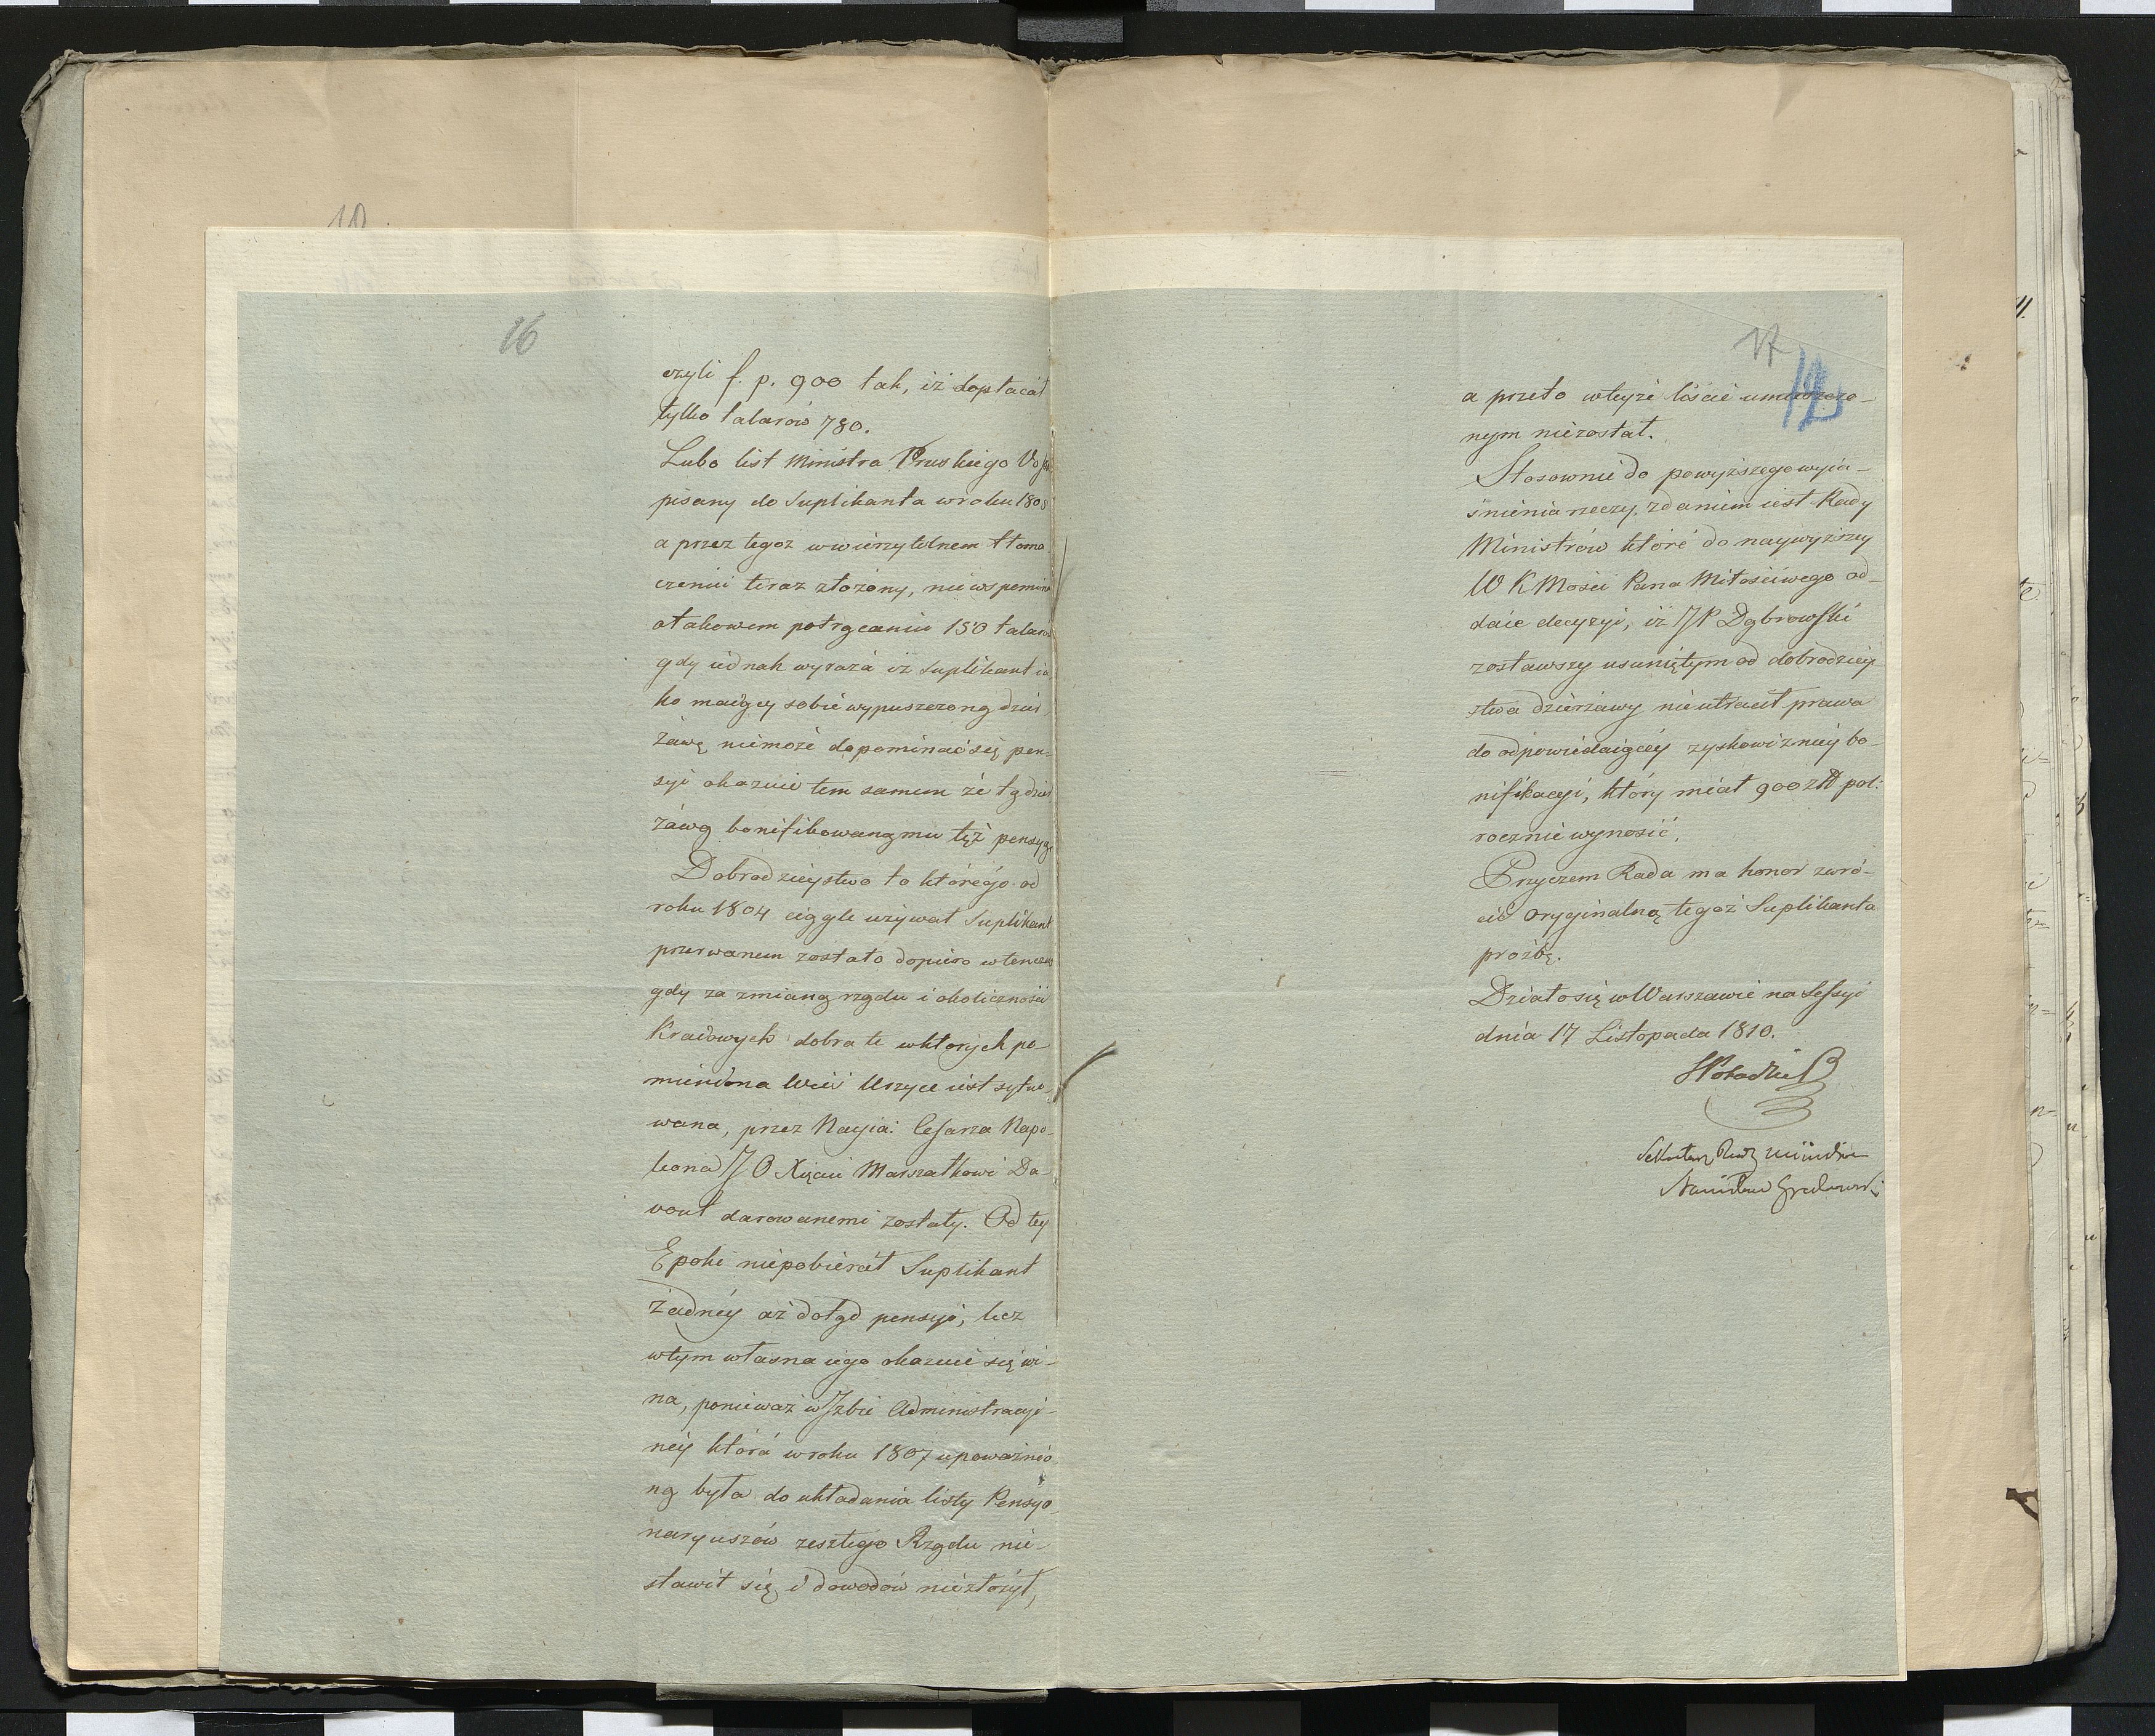 10.
16
czyli f. p. 900 tak, iż dopłacał
tylko talarów 780.
Lubo list Ministra Pruskiego
pisany do Suplikanta w roku 1808
a przez tegoż w wierzytelnem tłoma
czeniu teraz złożony, nie wspomina
o takowem potrąceniu 150 talarów
gdy iednak wyraża iż Suplikant ia
ko maiący sobie wypuszczoną dzier
żawę niemoże dopominać się pen-
syi okazuie tem samem że tą dzier
żawą bonifikowaną mu też pensyą.
Dobrodzieystwo to którego od
roku 1804 ciągle używał Suplikant
przerwanem zostało dopiero wtenczas
gdy za zmianą rządu i okoliczności
Kraiowych dobra te w których po-
mieniona Wieś Uszyce iest sytuo-
wana, przez Nayia: Cesarza Napo-
leona J O Xięciu Marszałkowi Da-
vout darowanemi zostały. Od tey
Epoki niepobierał Suplikant
żadnéy aż dotąd pensyi, lecz
w tym własna iego okazuie się wi-
na, ponieważ w Izbie Administracyi-
néy która w roku 1807 upoważnio-
ną była do układania listy Pensyo-
naryuszów zeszłego Rządu nie-
stawił się i dowodów niezłożył,
17
12
a przeto w teyże liście umieszczo-
nym niezostał.
Stosownie do powyższego wyia-
śnienia rzeczy, zdaniem iest Rady
Ministrów które do naywyższey
W K Mości Pana Miłościwego od-
daie decyzyi, iż JP Dąbrowski
zostawszy usuniętym od dobrodziey
stwa dzierżawy nieutracił prawa
do odpowiedaiącéy zyskowi z niéy bo-
nifikacyi, który miał 900 zł pol:
rocznie wynosić.
Przyczem Rada ma honor zwró-
cić oryginalną tegoż Suplikanta
proźbę.
Działo się w Warszawie na Sessyi
dnia 17 Listopada 1810.
S Potocki
Sekretarz Rady Ministrów
Stanisław Grabowski